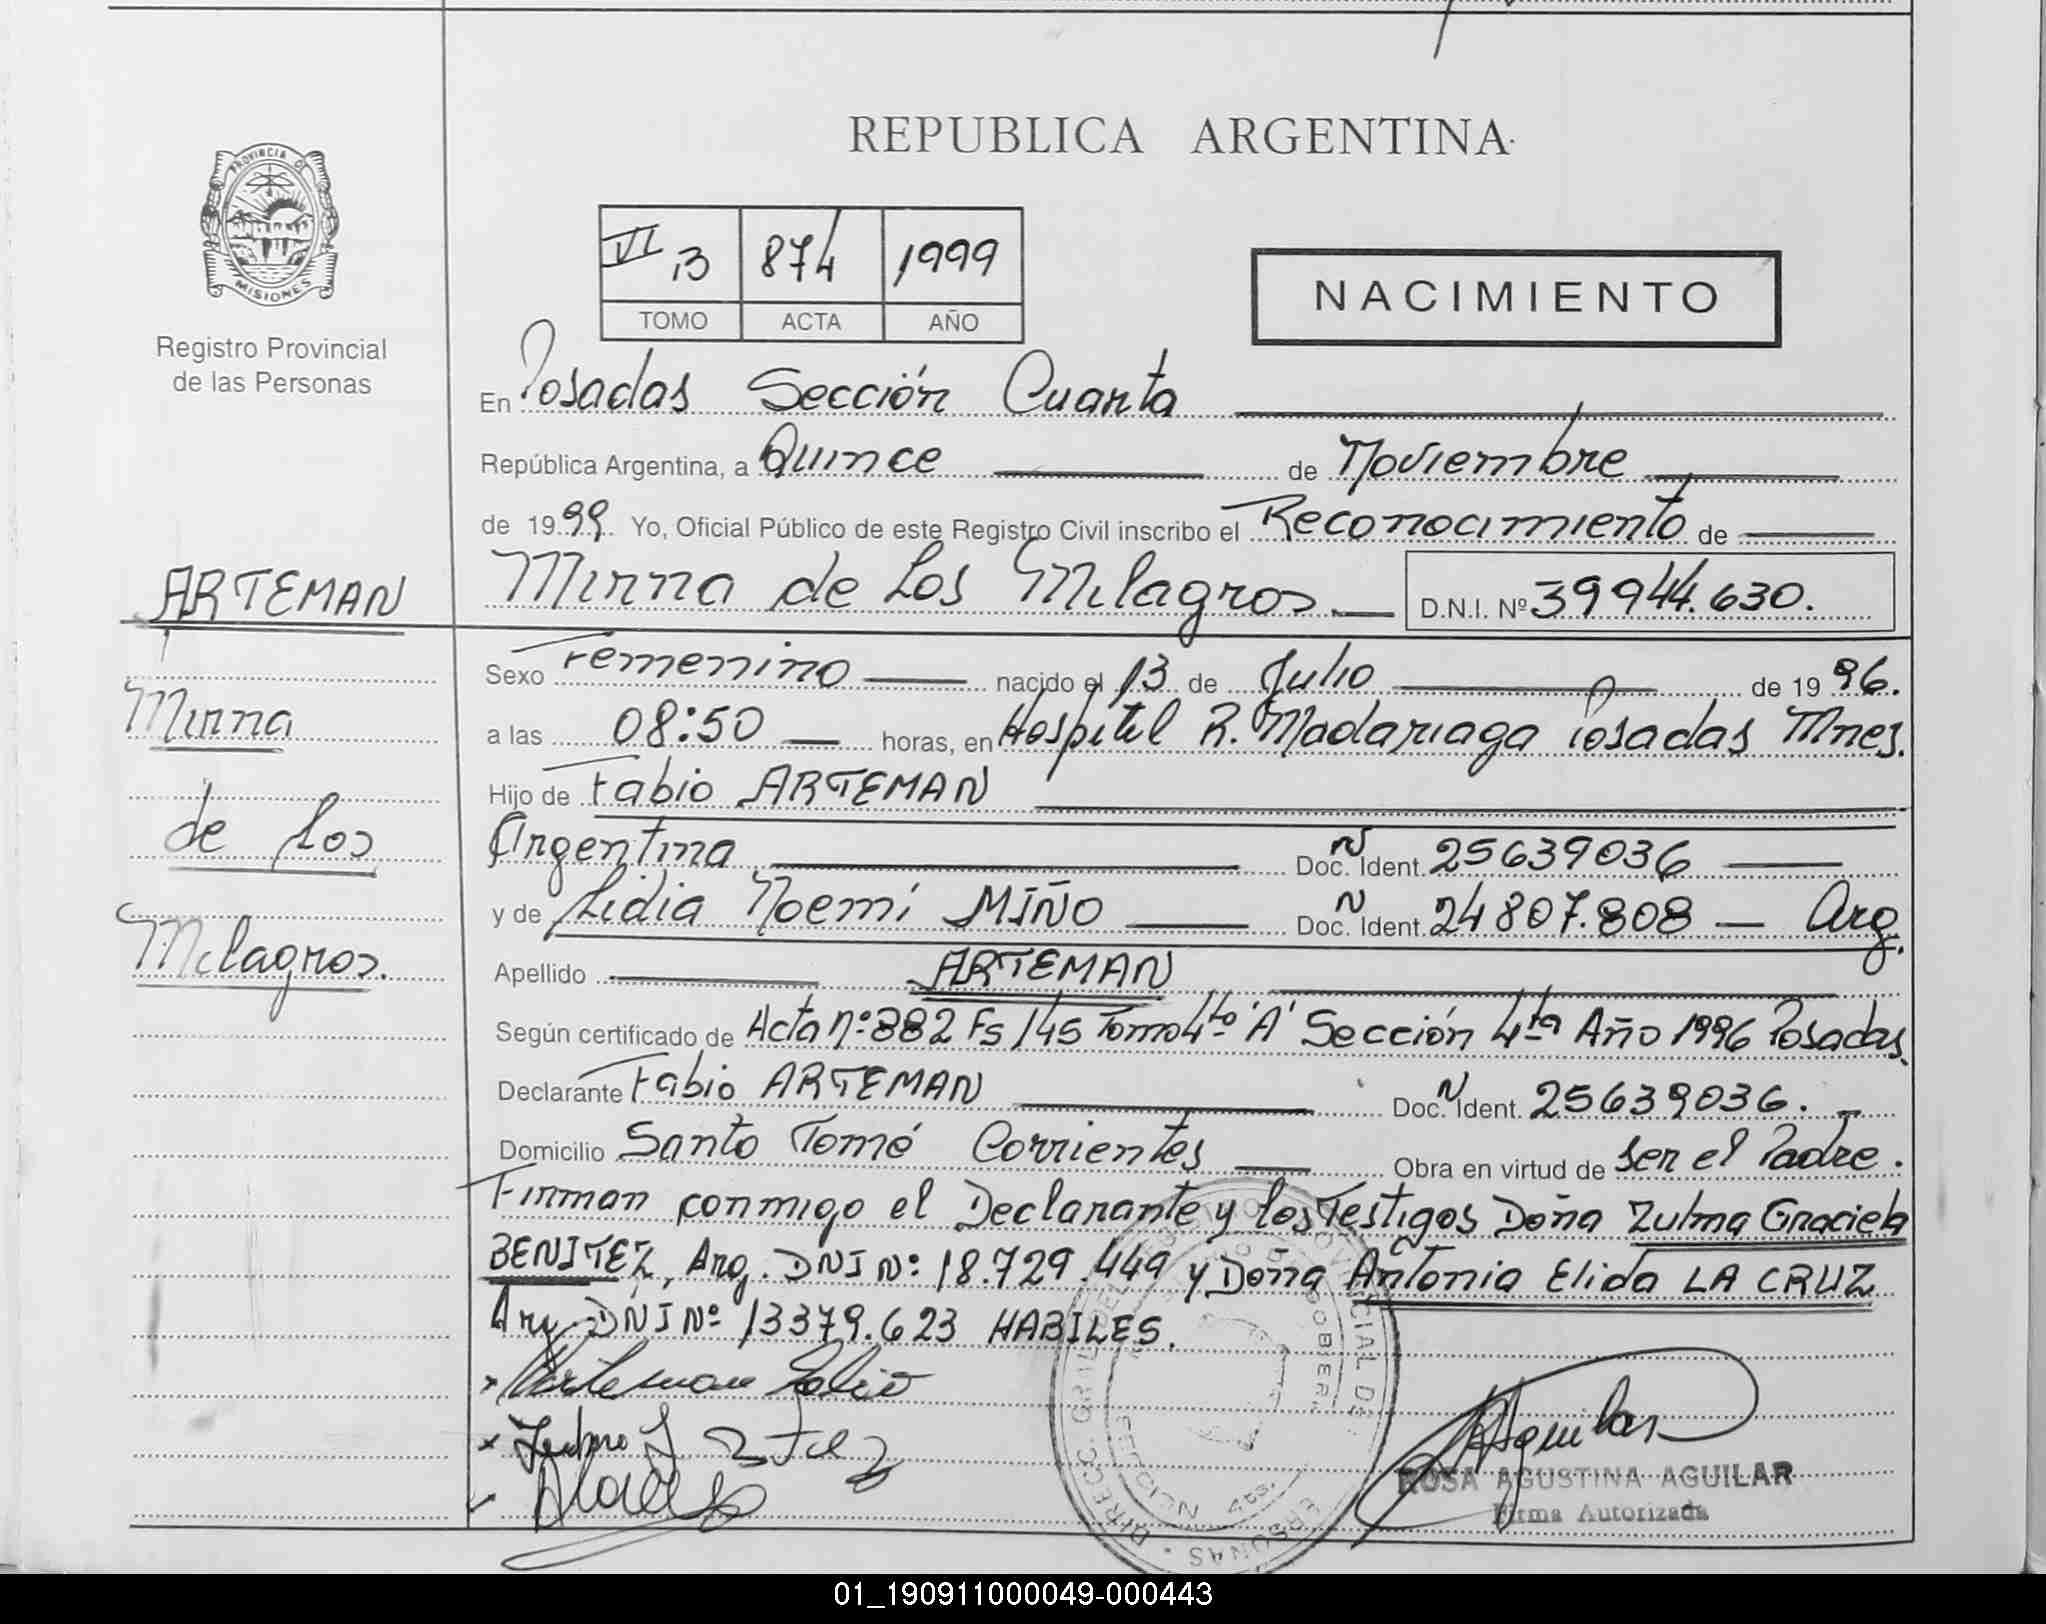 REPUBLICA ARGENTINA
PROVINCIA DE
MISIONES
Registro Provincial
de las Personas
VI B 874 1999
TOMO ACTA AÑO
NACIMIENTO
En Posadas Sección Cuarta
República Argentina, a Quince de Noviembre
de 1999 Yo, Oficial Público de este Registro Civil inscribo el Reconocimiento de
Mirna de Los Milagros D.N.I. Nº 39944.630.
ARTEMAN
Mirna
de Los
Milagros.
Sexo Femenino nacido el 13 de Julio de 1996.
a las 08:50 horas, en Hospital R. Madariaga Posadas Mnes.
Hijo de Fabio ARTEMAN
Argentina Doc. N Ident. 25639036
y de Lidia Noemi MIÑO Doc. N Ident. 24807.808 Arg.
Apellido ARTEMAN
Según certificado de Acta nº 382 Fs 145 Tomo 4to "A" Sección 4ta Año 1996 Posadas.
Declarante Fabio ARTEMAN Doc. N Ident. 25639036.
Domicilio Santo Tomé Corrientes Obra en virtud de ser el Padre.
Firman conmigo el Declarante y los Testigos Doña Zulma Graciela
BENITEZ, Arg. DNI Nº 18.729.449 y Doña Antonia Elida LA CRUZ
Arg. DNI Nº 13379.623 HABILES.
Arteman Fabio
Aguilar
ROSA AGUSTINA AGUILAR
Firma Autorizada
01_190911000049-000443